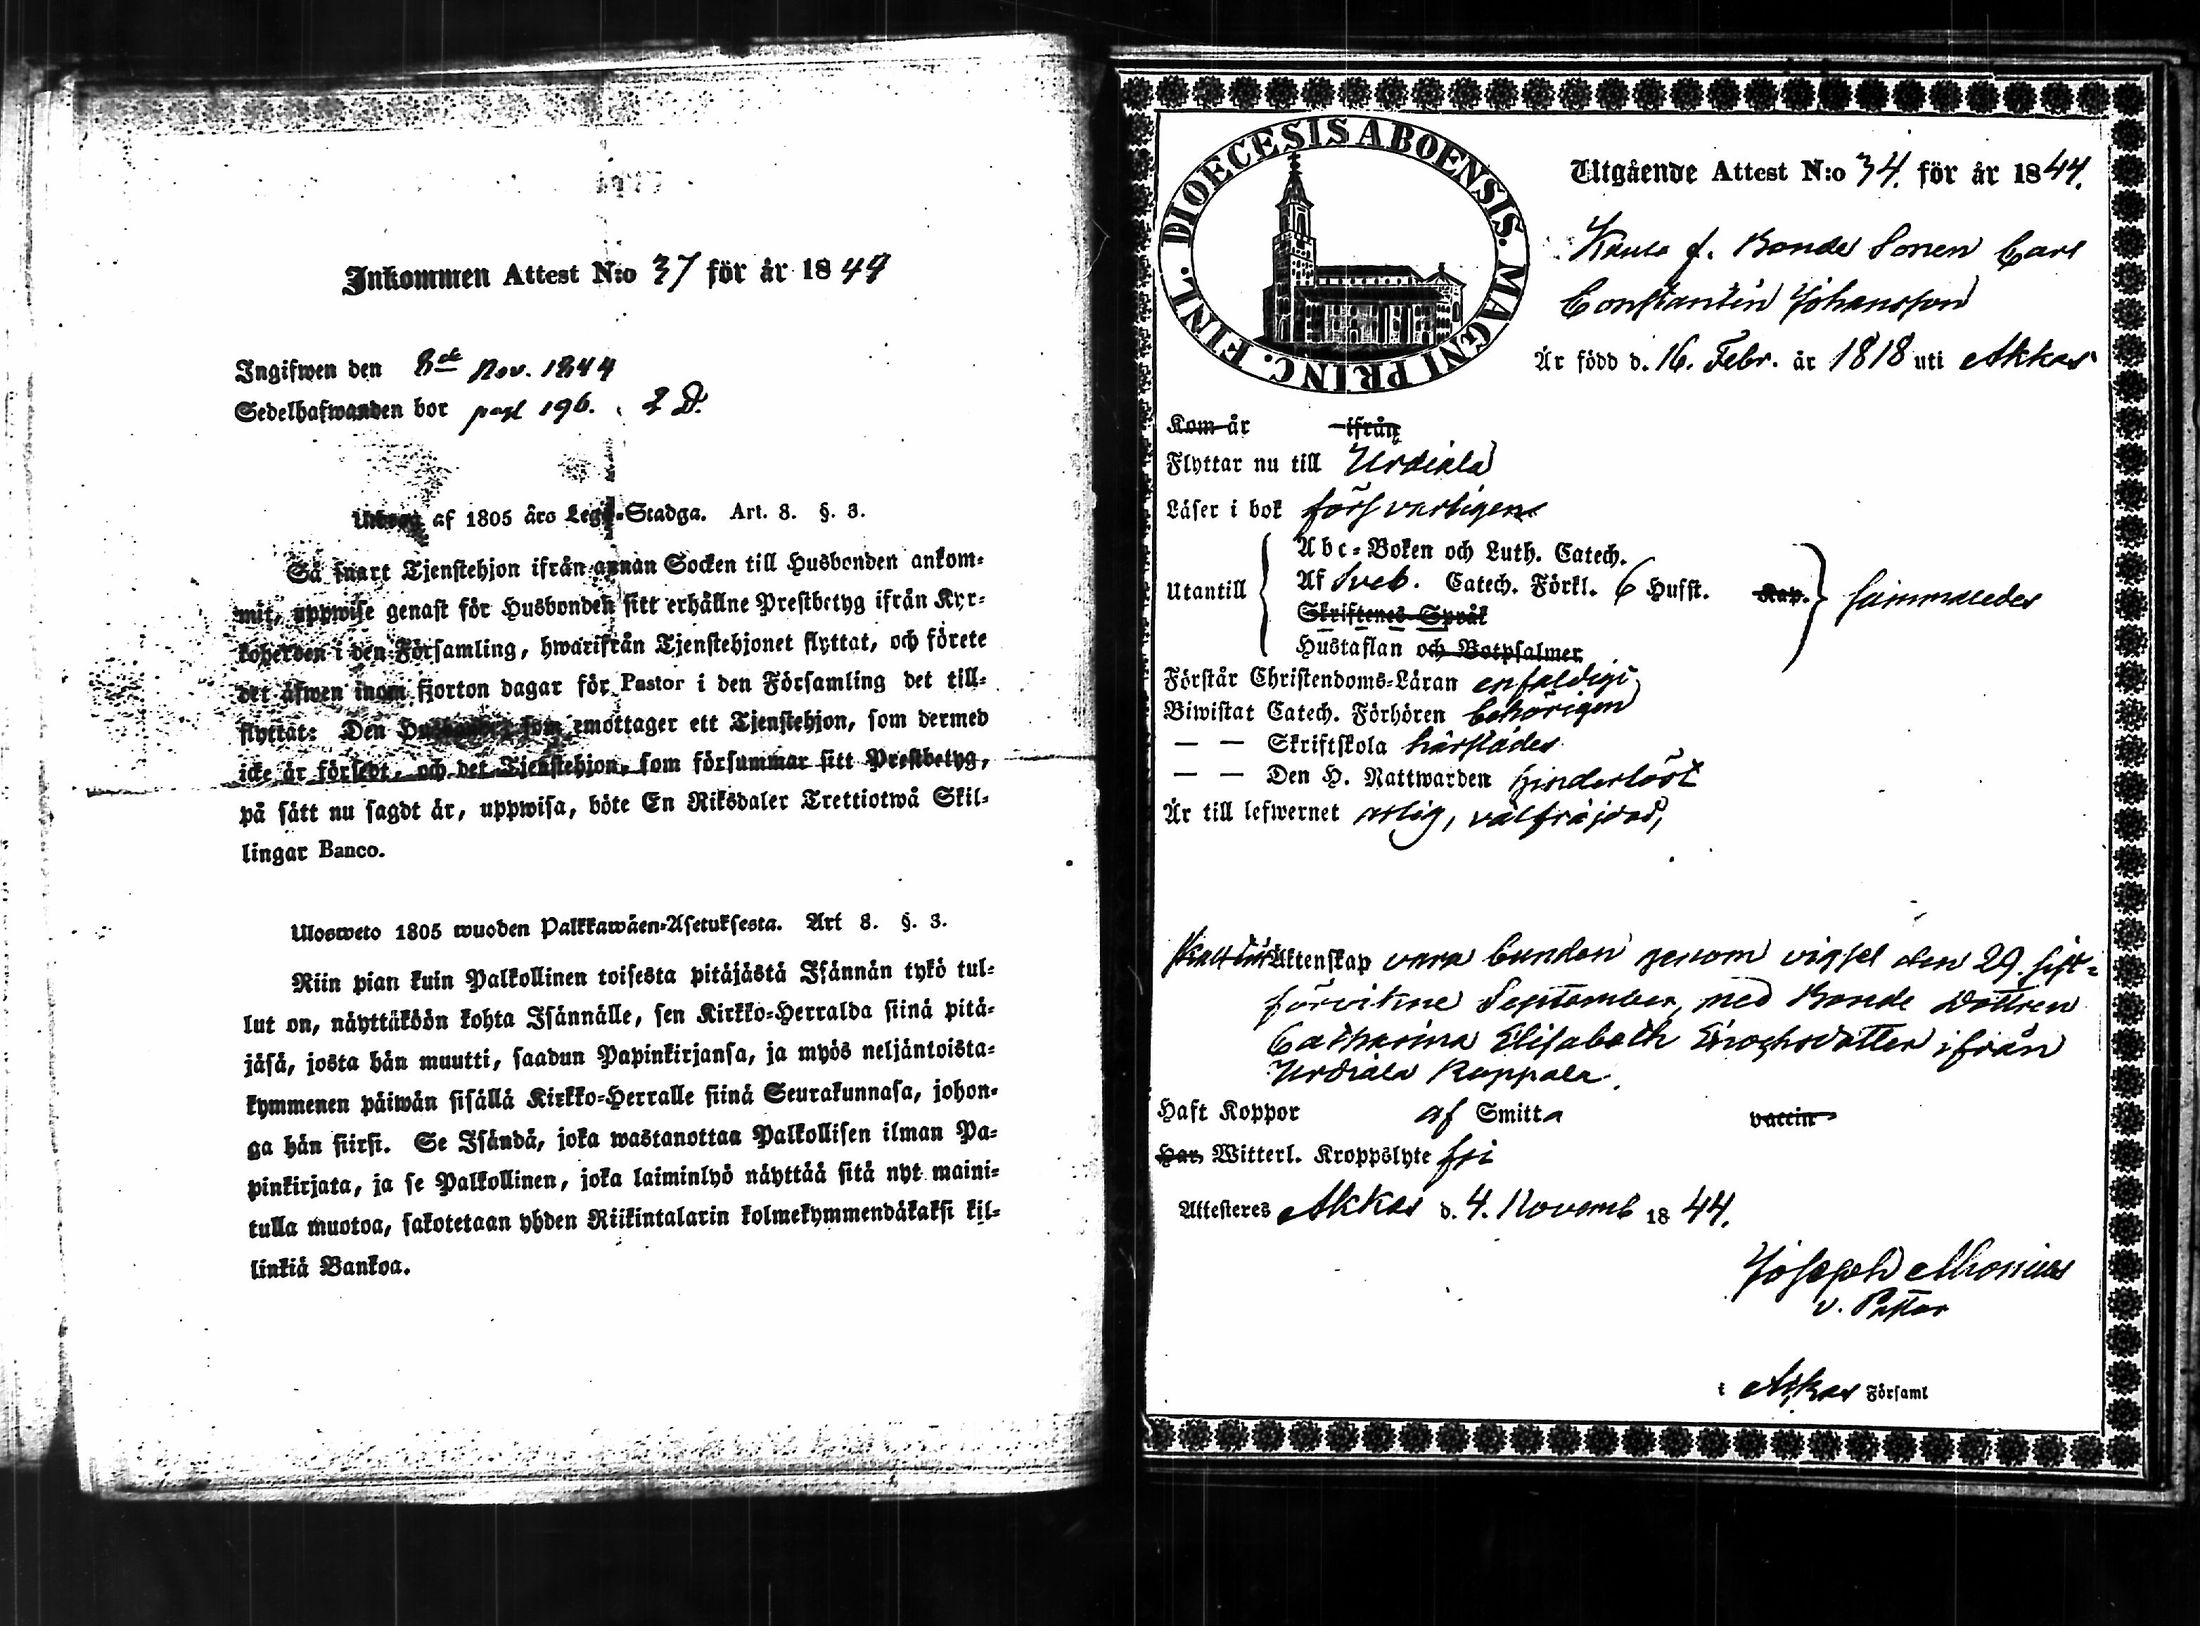 Inkommen Attest N:o 37 för år 1844
Ingifwen den 8de Nov. 1844
Sedelhafwanden bor pag 196. 2 D.
Utdrag af 1805 års Lego-Stadga. Art. 8. §. 3.
Så snart Tjenstehjon ifrån annan Socken till Husbonden ankom-
mit, uppwise genast för Husbonden sitt erhållne Prestbetyg ifrån Kyr-
koherden i den Församling, hwarifrån Tjenstehjonet flyttat, och förete
det äfwen inom fjorton dagar för Pastor i den Församling det till-
flyttat: Den som emottager ett Tjenstehjon, som dermed
icke är försedt, och det Tjenstehjon, som försummar sitt Prestbetyg,
på sätt nu sagdt är, uppwisa, böte En Riksdaler Trettiotwå Skil-
lingar Banco.
Ulosweto 1805 wuoden Palkkawäen-Asetuksesta. Art 8. §. 3.
Niin pian kuin Palkollinen toisesta pitäjästä Isännän tykö tul-
lut on, näyttäköön kohta Isännälle, sen Kirkko-Herralda siinä pitä-
jäsä, josta hän muutti, saadun Papinkirjansa, ja myös neljäntoista-
kymmenen päiwän sisällä Kirkko-Herralle siinä Seurakunnasa, johon-
ga hän siirsi. Se Isändä, joka wastanottaa Palkollisen ilman Pa-
pinkirjata, ja se Palkollinen, joka laiminlyö näyttää sitä nyt maini-
tulla muotoa, sakotetaan yhden Riikintalarin kolmekymmendäkaksi kil-
linkiä Bankoa.
DIOECESIS ABOENSIS. MAGNI PRINC. FINL.
Utgående Attest N:o 34. för år 1844.
f. Bonde Sonen Carl
Constantin Johansson
Är född d. 16. Febr. år 1818 uti Akkas
Kom år ifrån
Flyttar nu till Urdiala
Läser i bok försvarligen
Utantill
Abc-Boken och Luth. Catech.
Af Sveb. Catech. Förkl. 6 Hufst. Kap.
Skriftenes Språk
Hustaflan och Botpsalmer
sammaledes
Förstår Christendoms-Läran enfaldigt
Biwistat Catech. Förhören behörigen
— — Skriftskola härstädes
— — Den H. Nattwarden hinderlöst
Är till lefwernet ärlig, välfräjdad,
Äktenskap vara bunden genom vigsel den 29. sist-
förvikne September, med Bonde Dottren
Catharina Elisabeth Enochsdotter ifrån
Urdiala
Haft Koppor af Smitta vaccin
Har Witterl. Kroppslyte fri
Attesteres Akkas d. 4. Novemb 1844.
Joseph
v. Pastor
i Akkas Församl